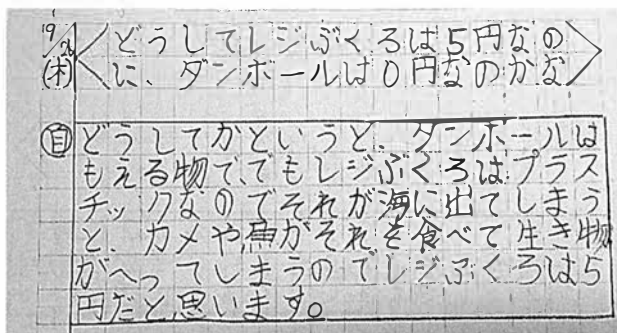 9/26(木)
どうしてレジぶくろは5円なの
に、ダンボールは0円なのかな
自
どうしてかというと、ダンボールは
もえる物で、でもレジぶくろはプラス
チックなのでそれが海に出てしまう
と、カメや、鳥がそれを食べて生き物
がへってしまうのでレジぶくろは5
円だと、思います。